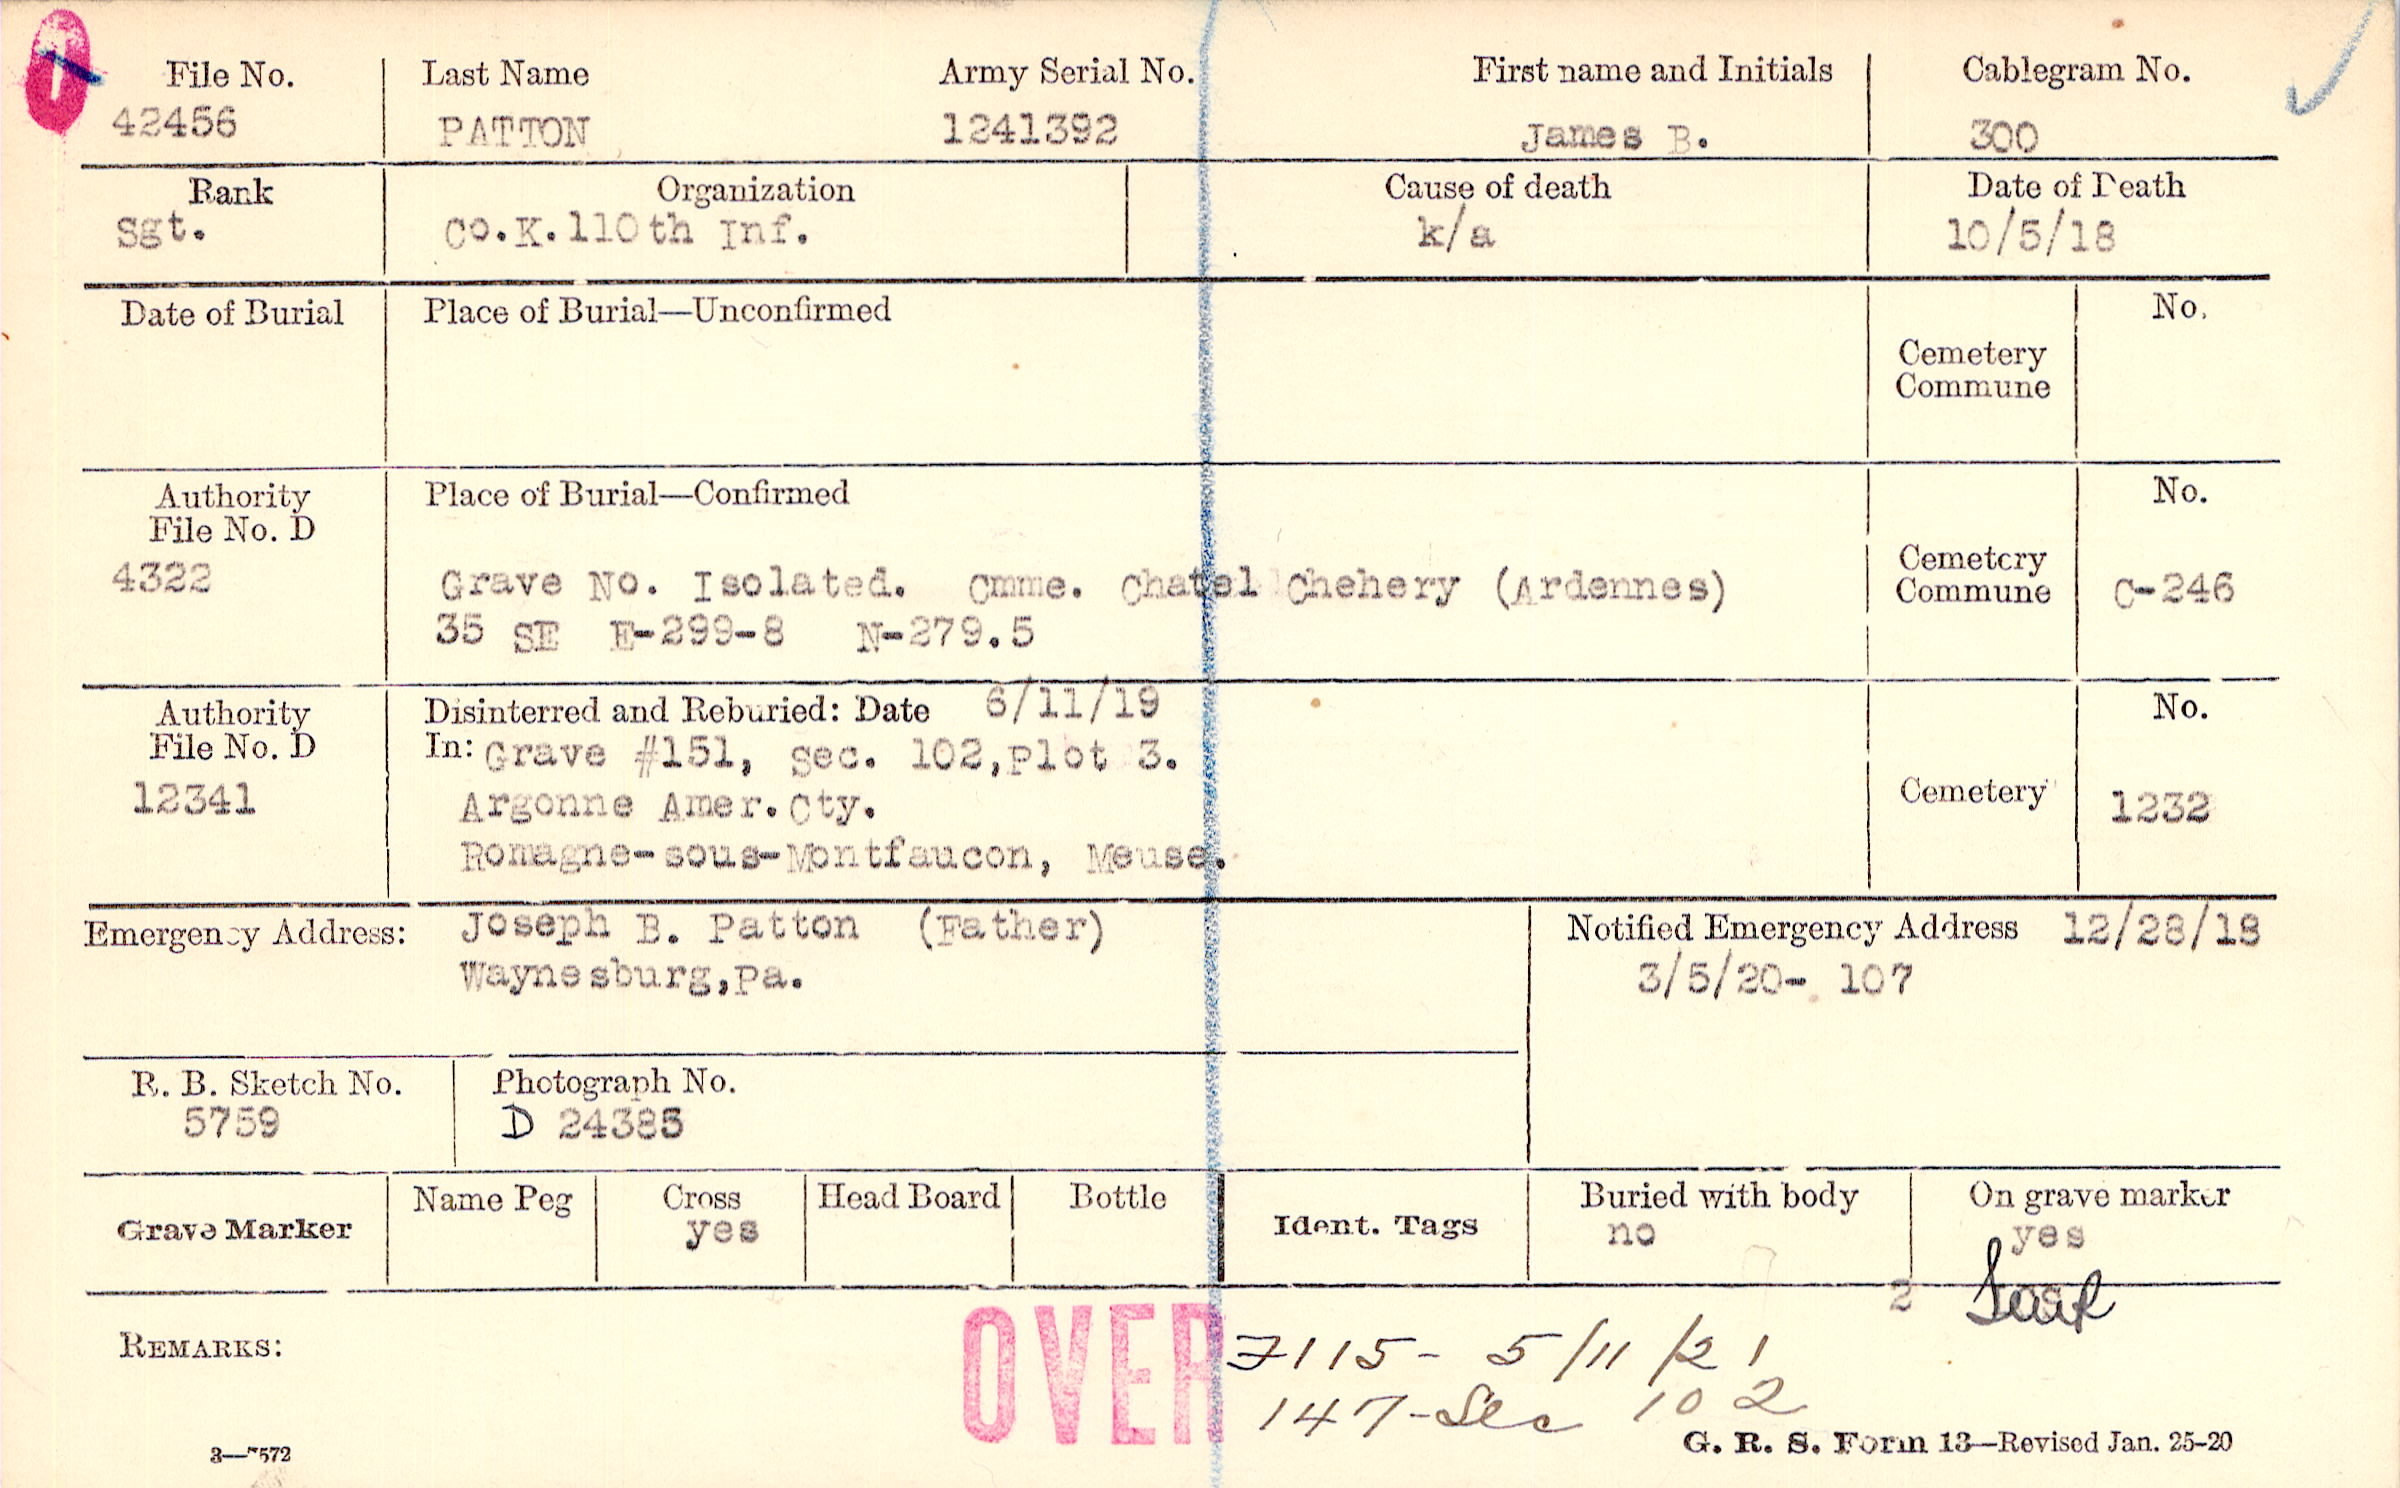 File No. Last Name Army Serial No. First name and Initials Cablegram No.
42456 PATTON 1241392 James B. 300
Rank Organization Cause of death Date of Death
Sgt. Co.K.110th Inf. k/a 10/5/18
Date of Burial Place of Burial—Unconfirmed No.
Cemetery
Commune
Authority Place of Burial—Confirmed No.
File No. D
4322 Grave No. Isolated. Cmme. Chatel Chehery (Ardennes) Cemetery
Commune C-246
35 SE E-299-8 N-279.5
Authority Disinterred and Reburied: Date 6/11/19 No.
File No. D In: Grave #151, Sec. 102,Plot 3.
12341 Argonne Amer.Cty. Cemetery 1232
Romagne-sous-Montfaucon, Meuse.
Emergency Address: Joseph B. Patton (Father) Notified Emergency Address 12/28/18
Waynesburg,Pa. 3/5/20- 107
R. B. Sketch No. Photograph No.
5759 D 24385
Grave Marker Name Peg Cross Head Board Bottle Ident. Tags Buried with body On grave marker
yes no yes
2
REMARKS: OVER 7115- 5/11/21
147-Sec 102
3—7572 G. R. S. Form 13—Revised Jan. 25-20